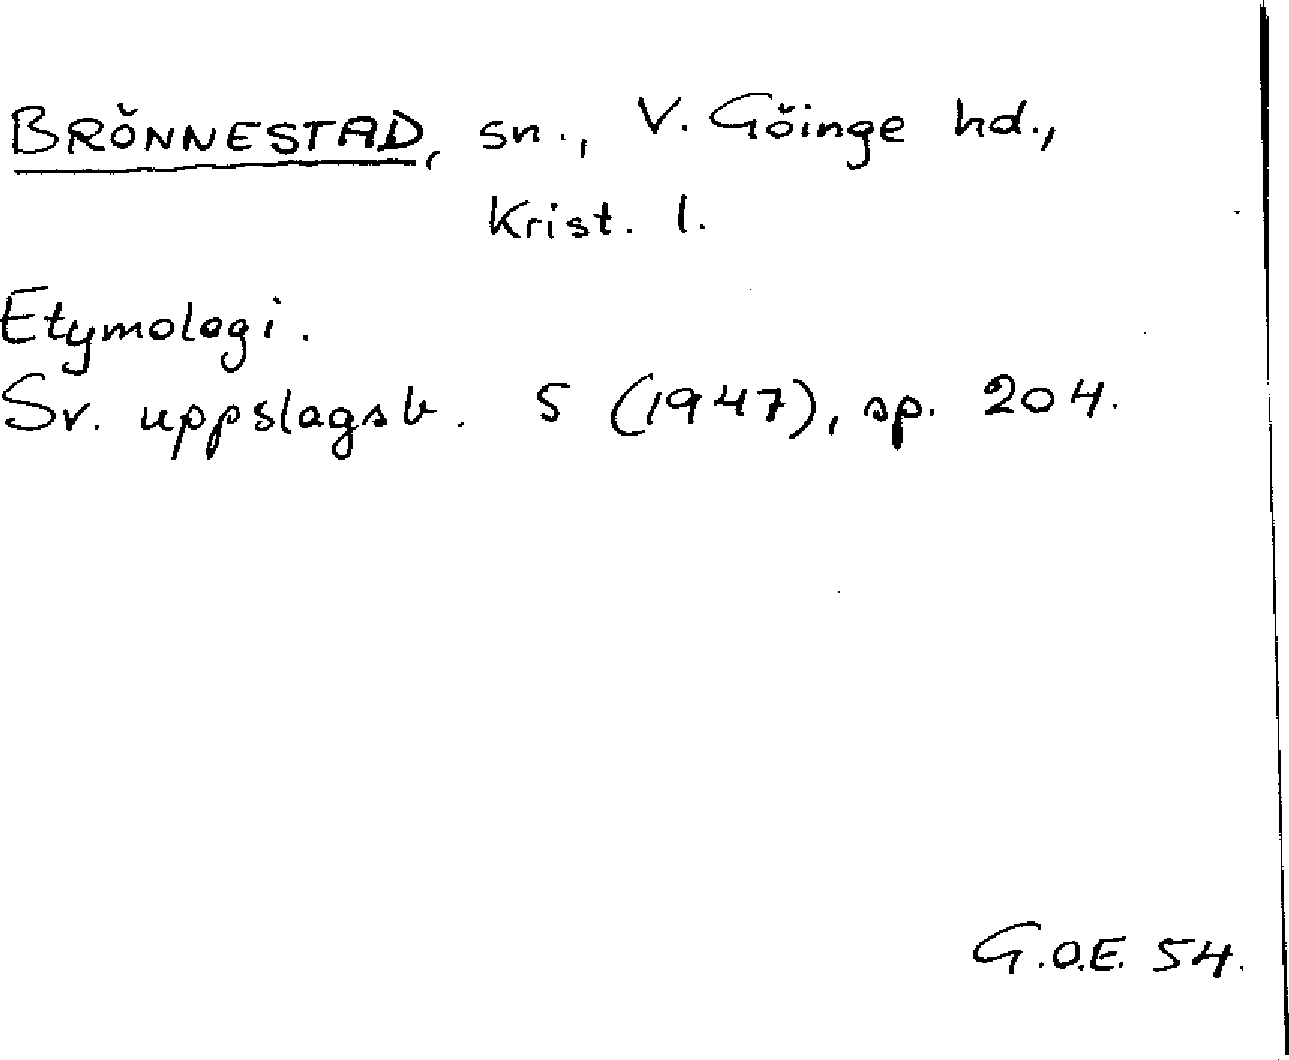 BRÖNNESTAD, sn., V. Göinge hd.,
Krist. l.
Etymologi.
Sv. uppslagsb. 5 (1947), sp. 204.
G.O.E. 54.